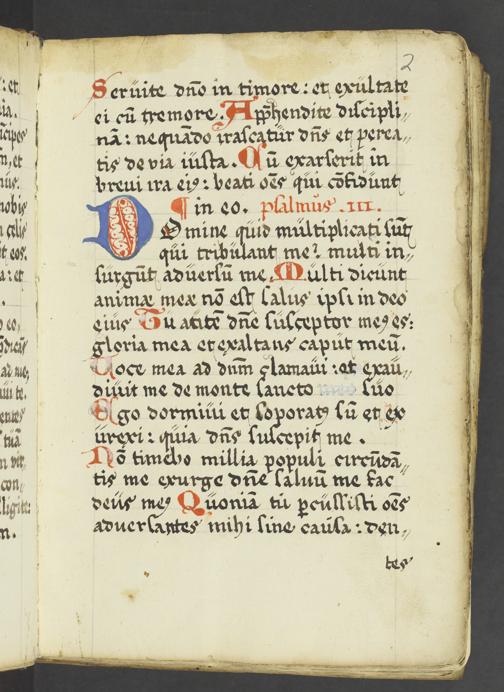 2
Seruite dño in timore : et exultate
ei cũ tremore . App̃hendite discipli„
nã : nequãdo irascatur dñs et perea„
tis de via iusta . Cũ exarserit in
breui ira eiꝰ : beati oẽs qui cõfidunt
¶ in eo . psalmus . III .
Domine quid multiplicati sũt
qui tribulant me ? multi in„
surgũt aduersũ me Multi dicunt
animæ meæ nõ est salus ipsi in deo
eius Tu autẽ dñe susceptor meꝰ es :
gloria mea et exaltans caput meũ .
Uoce mea ad dñm clamaui : et exau„
diuit me de monte sancto suo
Ego dormiui et soporatꝰ sũ et ex
urexi : quia dñs suscepit me .
Nõ timebo millia populi circũdã„
tis me exurge dñe saluũ me fac
deus meꝰ Quoniã tu ꝑcussisti oẽs
aduersantes mihi sine causa : den„
tes